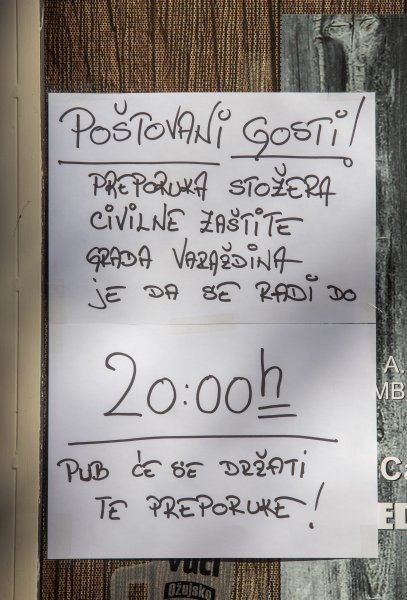 POŠTOVANI GOSTI!
PREPORUKA STOŽERA
CIVILNE ZAŠTITE
GRADA VARAŽDINA
JE DA SE RADI DO
20:00h
PUB ĆE SE DRŽATI
TE PREPORUKE!
A.
MB
C
ED
vuči
Ožujsko